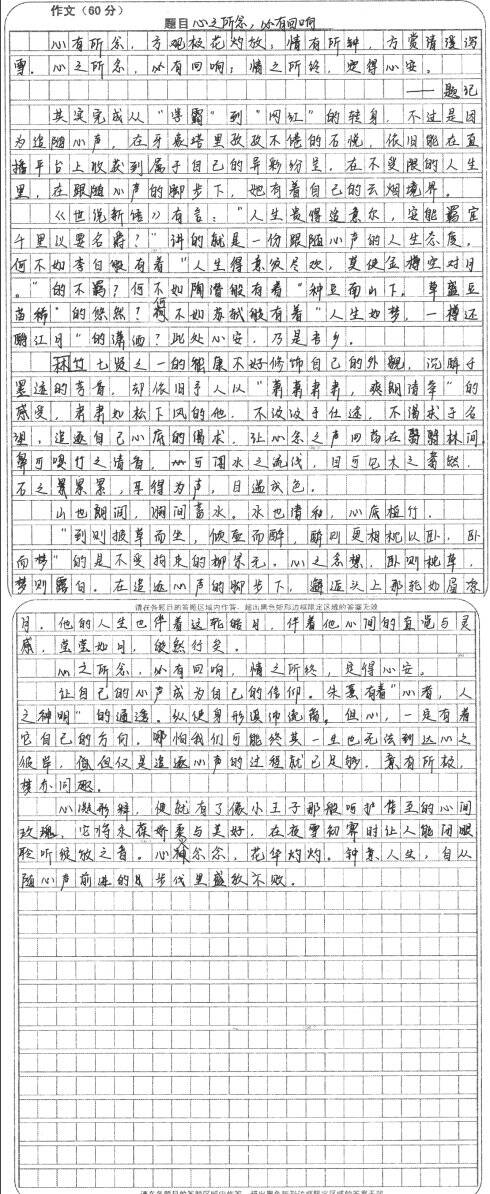 作文（60分）
题目 心之所念，必有回响
心有所念，方观枝花灼放；情有所钟，方赏清溪泻
雪。心之所念，必有回响；情之所终，定得心安。
——题记
其实完成从“学霸”到“网红”的转身，不过是因
为追随心声，在牙塔里孜孜不倦的石悦，依旧能在直
播平台上收获到属于自己的异彩纷呈。在不受限的人生
里，在跟随心声的脚步下，她有着自己的云烟境界。
《世说新语》有言：“人生贵得适意尔，安能羁宦
千里以要名爵？”讲的就是一份跟随心声的人生态度。
何不如李白般有着“人生得意须尽欢，莫使金樽空对月
。”的不羁？何不如陶潜般有着“种豆南山下。草盛豆
苗稀”的悠然？何不如苏轼般有着“人生如梦，一樽还
酹江月”的潇洒？此处心安，乃是吾乡。
林竹七贤之一的嵇康不好修饰自己的外貌，沉醉于
墨迹的芳香，却依旧予人以“萧萧肃肃，爽朗清举”的
感受，肃肃如松下风的他，不汲汲于仕途，不渴求于名
望，追逐自己心底的渴求，让心念之声回荡在翳翳林间，
鼻可嗅竹之清香，可闻水之流伐，目可见木之蓊然，
石之累累，耳得为声，目遇成色。
山也朗润，胸间蓄水。水也清和，心底植竹。
“到则披草而坐，倾壶而醉，醉则更相枕以卧，卧
而梦”的是不受拘束的柳宗元。心之念想，卧则枕草，
梦则露白。在追逐心声的脚步下，邂逅头上那轮如眉弯
请在各题目的答题区域内作答，超出黑色矩形边框限定区域的答案无效
月，他的人生也伴着这轮皓月，伴着他心间的直觉与灵
感，莹莹如月，皎然行矣。
心之所念，必有回响，情之所终，定得心安。
让自己的心声成为自己的信仰。朱熹有着“心者，人
之神明”的通透。纵使身形颠沛流离。但心，一定有着
它自己的方向。哪怕我们可能终其一生也无法到达心之
彼岸，但仅仅是追逐心声的过程就已足够，意有所极，
梦亦同趣。
心凝形释，便就有了像小王子那般呵护备至的心间
玫瑰，它将永葆娇柔与美好，在夜雪初霁时让人能闭眼
聆听绽放之音。心念念，花华灼灼。钟意人生，自从
随心声前进的步伐里盛放不败。
请在各题目的答题区域内作答，超出黑色矩形边框限定区域的答案无效